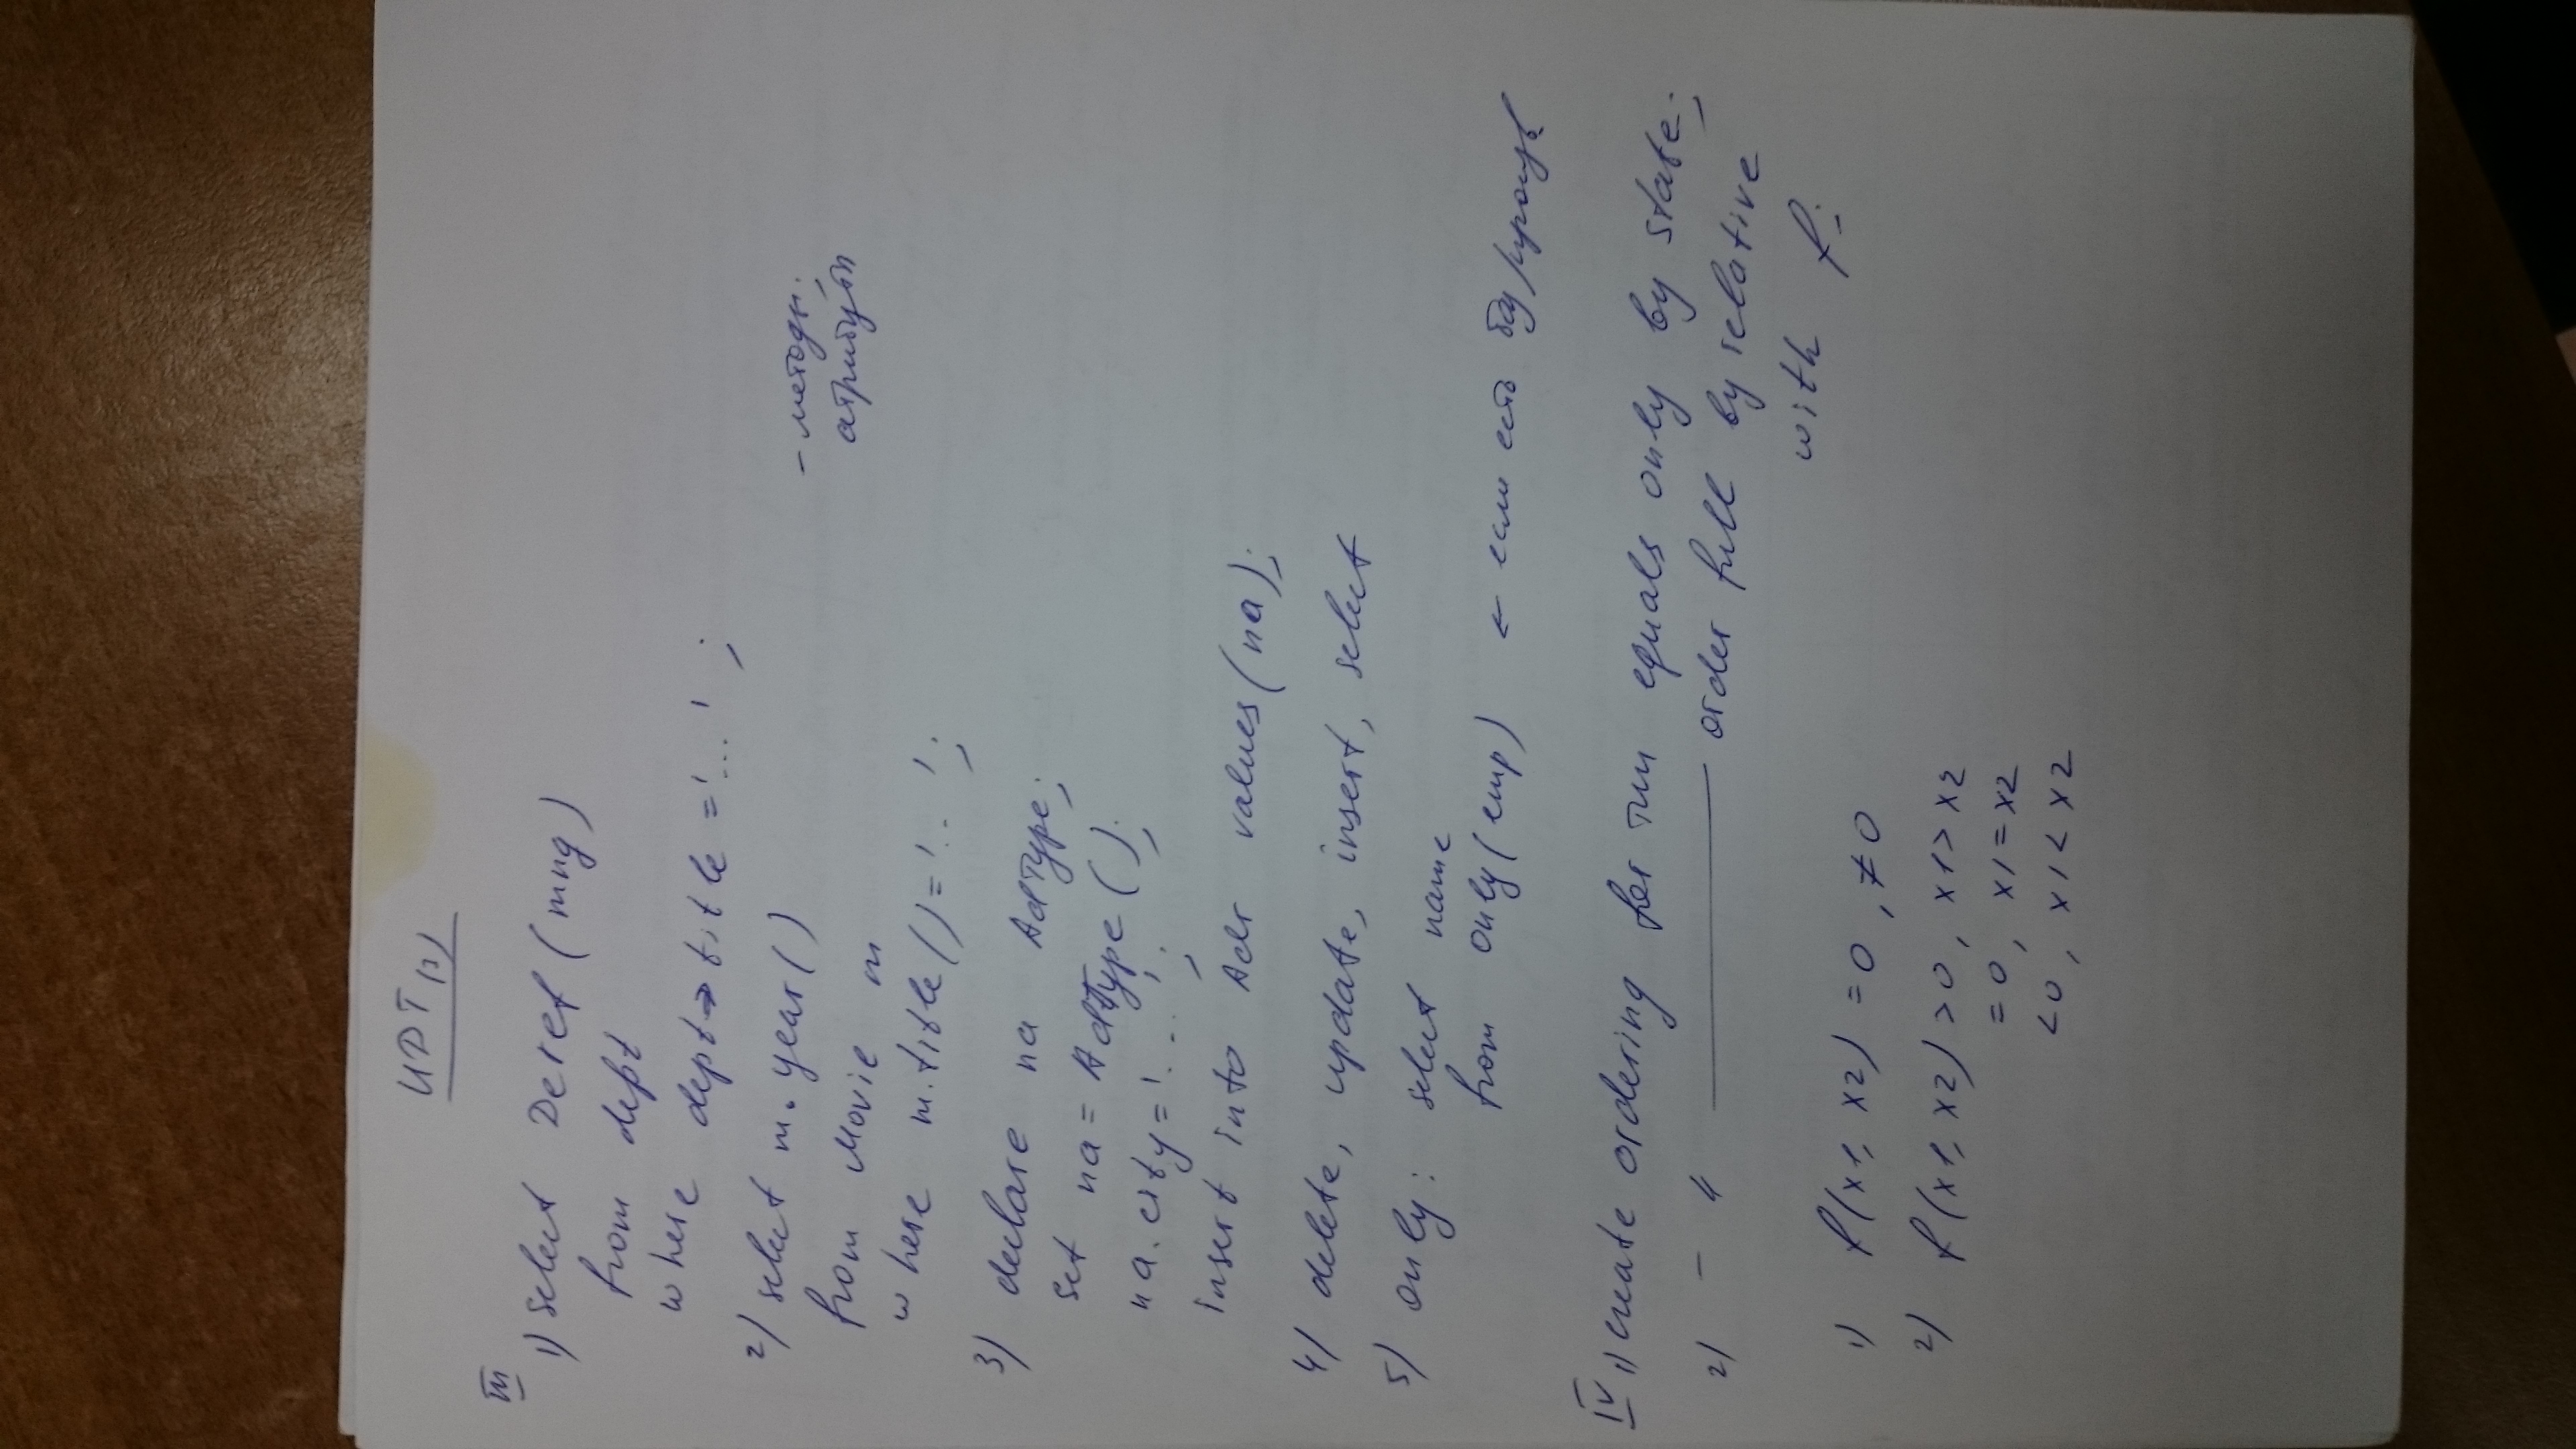 UDT (3)
III
1) select Deref (mng)
from dept
where dept→title = '...' ;
2) select m.year()
from Movie m
where m.title() = '..' ;
- методы;
атрибуты
3) declare na AdType;
set na = AdType();
na.city = '...' ;
insert into Adr values(na);
4) delete, update, insert, select
5) only: select name
from only(emp) ← если есть баз/произв.
IV 1) create ordering for тип equals only by state;
2) — " ——— order full by relative
with f;
1) f(x1, x2) = 0, ≠0
2) f(x1, x2) > 0, x1 > x2
= 0, x1 = x2
< 0, x1 < x2